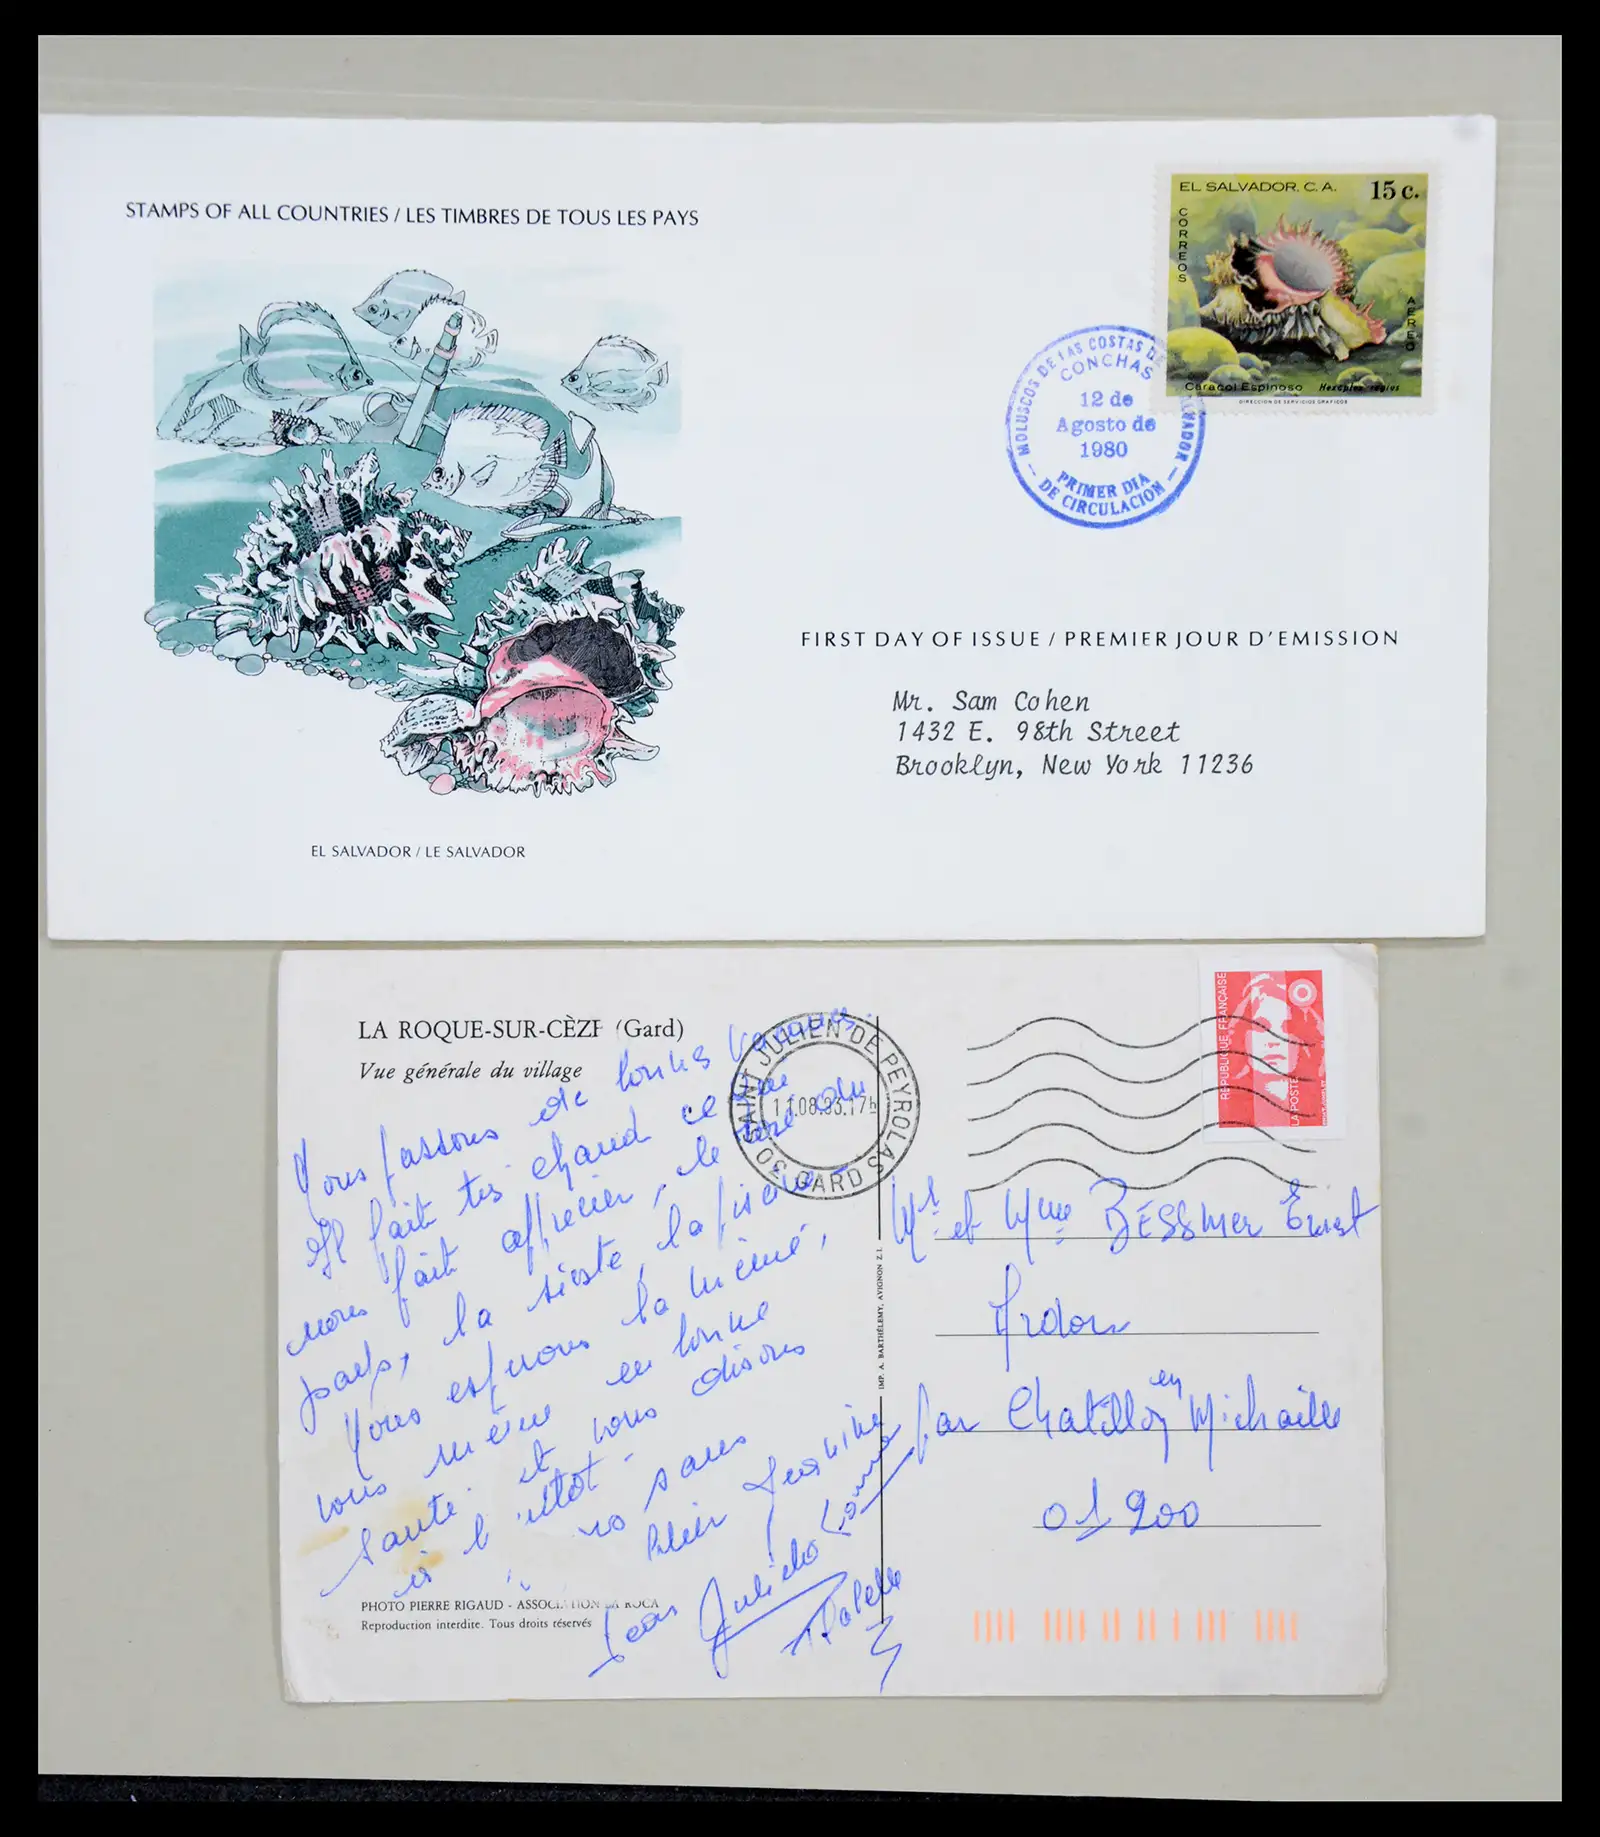 STAMPS OF ALL COUNTRIES / LES TIMBRES DE TOUS LES PAYS
EL SALVADOR. C. A. 15 c.
CORREOS
AEREO
Caracol Espinoso Hexaplex regius
DIRECCION DE SERVICIOS GRAFICOS
MOLUSCOS DE LAS COSTAS DE
CONCHAS
12 de
Agosto de
1980
PRIMER DIA
DE CIRCULACION
FIRST DAY OF ISSUE / PREMIER JOUR D'EMISSION
Mr. Sam Cohen
1432 E. 98th Street
Brooklyn, New York 11236
EL SALVADOR / LE SALVADOR
LA ROQUE-SUR-CÈZE (Gard)
Vue générale du village
REPUBLIQUE FRANÇAISE
LA POSTE
SAINT JULIEN DE PEYROLAS
11.08.93.17h
30 GARD
Nous passons de bonnes vacances.
Il fait très chaud ce
nous fait apprécier, le
pays, la sieste, la piscine
Nous espérons la même,
vous même en bonne
santé et vous disons
à bientôt
Jeannine
Mr et Mme BESSMER Ernest
Ardon
par Chatillon en Michaille
01 200
IMP. A. BARTHÉLEMY, AVIGNON Z.I.
PHOTO PIERRE RIGAUD - ASSOCIATION LA ROCA
Reproduction interdite. Tous droits réservés